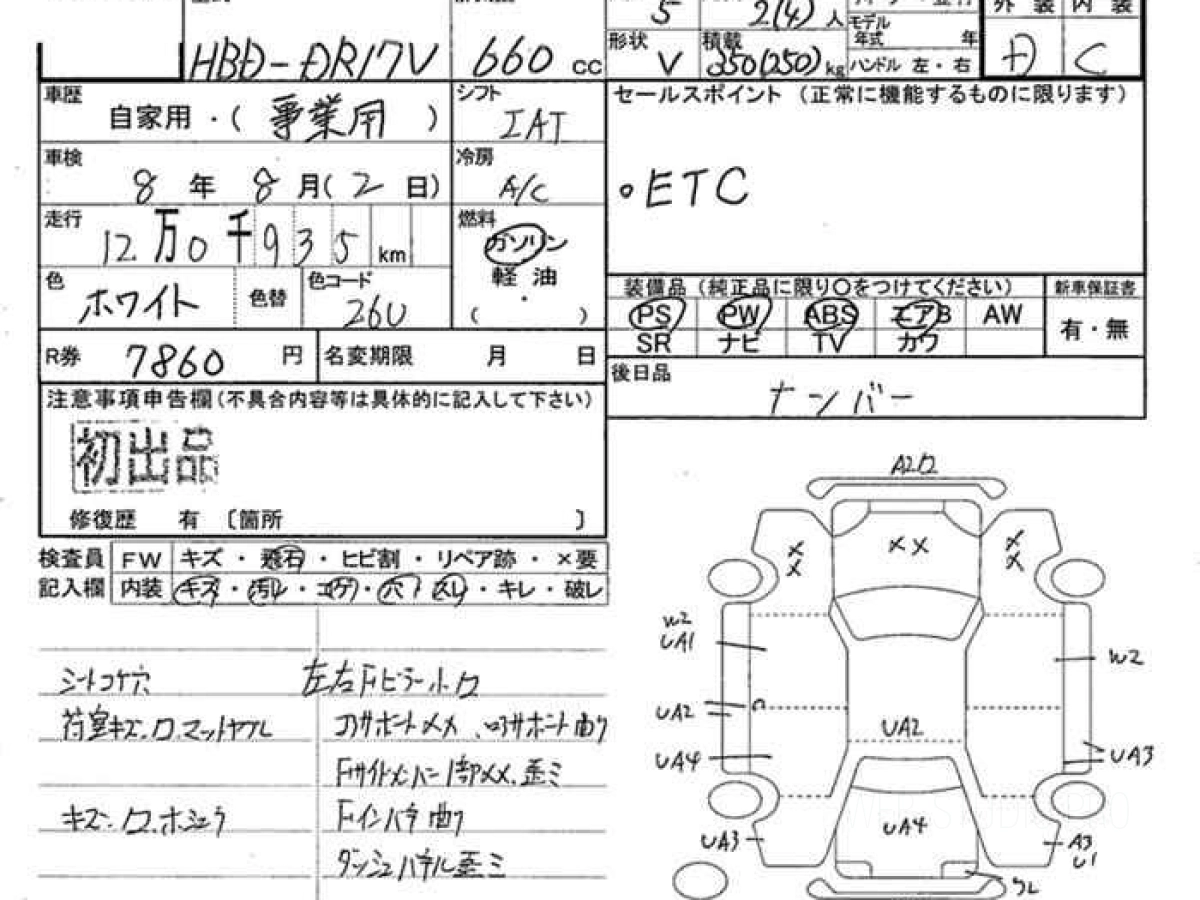 5 2(4)人
モデル年式 年
外装 内装
HBD-DR17V 660 CC
形状 V 積載 350(250)kg ハンドル 左・右 D C
車歴 自家用・(事業用)
シフト IAT
セールスポイント(正常に機能するものに限ります)
車検 8年8月(2日)
冷房 A/C
・ETC
走行 12万0千935km
燃料 ガソリン
軽油
・
( )
色 ホワイト 色替 色コード 26U
装備品(純正品に限り○をつけてください) 新車保証書
PS PW ABS エアB AW 有・無
SR ナビ TV カワ
R券 7860円 名変期限 月 日
後日品 ナンバー
注意事項申告欄(不具合内容等は具体的に記入して下さい)
初出品
修復歴 有〔箇所 〕
検査員 FW キズ・飛石・ヒビ割・リペア跡・×要
記入欄 内装 キズ・汚レ・コゲ・穴・スレ・キレ・破レ
シートコゲ穴 左右Fピラー小ロ
荷室キズ、ロ、マットヤブレ コアサポート××、ロアサポート曲り
Fサイドメンバー1部××、歪ミ
キズ、ロ、ホシュウ Fインパネ曲り
ダッシュパネル歪ミ
A2ロ
×× ×× ××
W2
UA1
W2
UA2
UA2
UA4
UA3
UA4
UA3
A3
U1